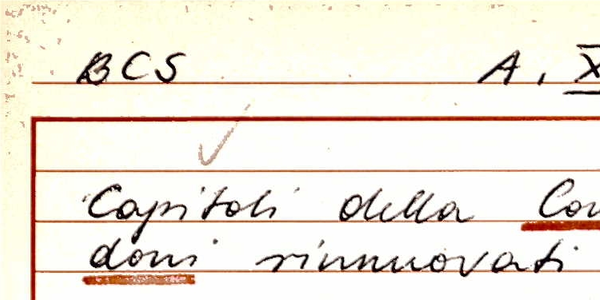 BCS A, X
Capitoli della Con
doni rinnuovati